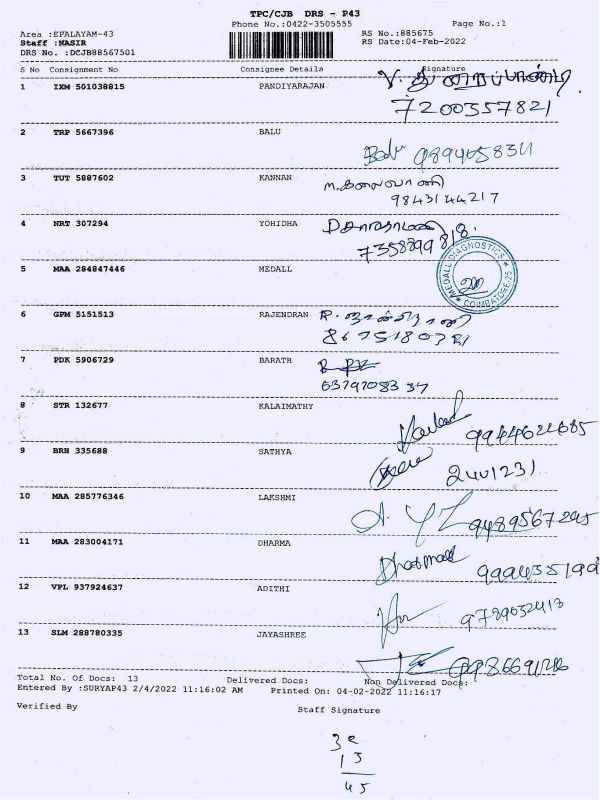 TPC/CJB DRS - P43
Phone No.:0422-3505555 Page No.:1
Area :EFALAYAM-43 RS No.:885675
Staff :NASIR RS Date:04-Feb-2022
DRS No. :DCJB88567501
S No Consignment No Consignee Details Signature
1 IXM 501038815 PANDIYARAJAN V. துரைப்பாண்டி
7200557821
2 TRP 5667396 BALU
Balu
3 TUT 5887602 KANNAN M.கலைவாணி
9843144217
4 NRT 307294 YOHIDHA
7358399818
5 MAA 284847446 MEDALL MEDALL DIAGNOSTICS ★ COIMBATORE-25 ★
6 GPM 5151513 RAJENDRAN R.
8675180781
7 PDK 5906729 BARATH
6379708337
8 STR 132677 KALAIMATHY
9944621685
9 BRH 335688 SATHYA
2401231
10 MAA 285776346 LAKSHMI
9489567295
11 MAA 283004171 DHARMA
12 VPL 937924637 ADITHI
9789032413
13 SLM 288780335 JAYASHREE
Total No. Of Docs: 13 Delivered Docs: Non Delivered Docs:
Entered By :SURYAP43 2/4/2022 11:16:02 AM Printed On: 04-02-2022 11:16:17
Verified By Staff Signature
45